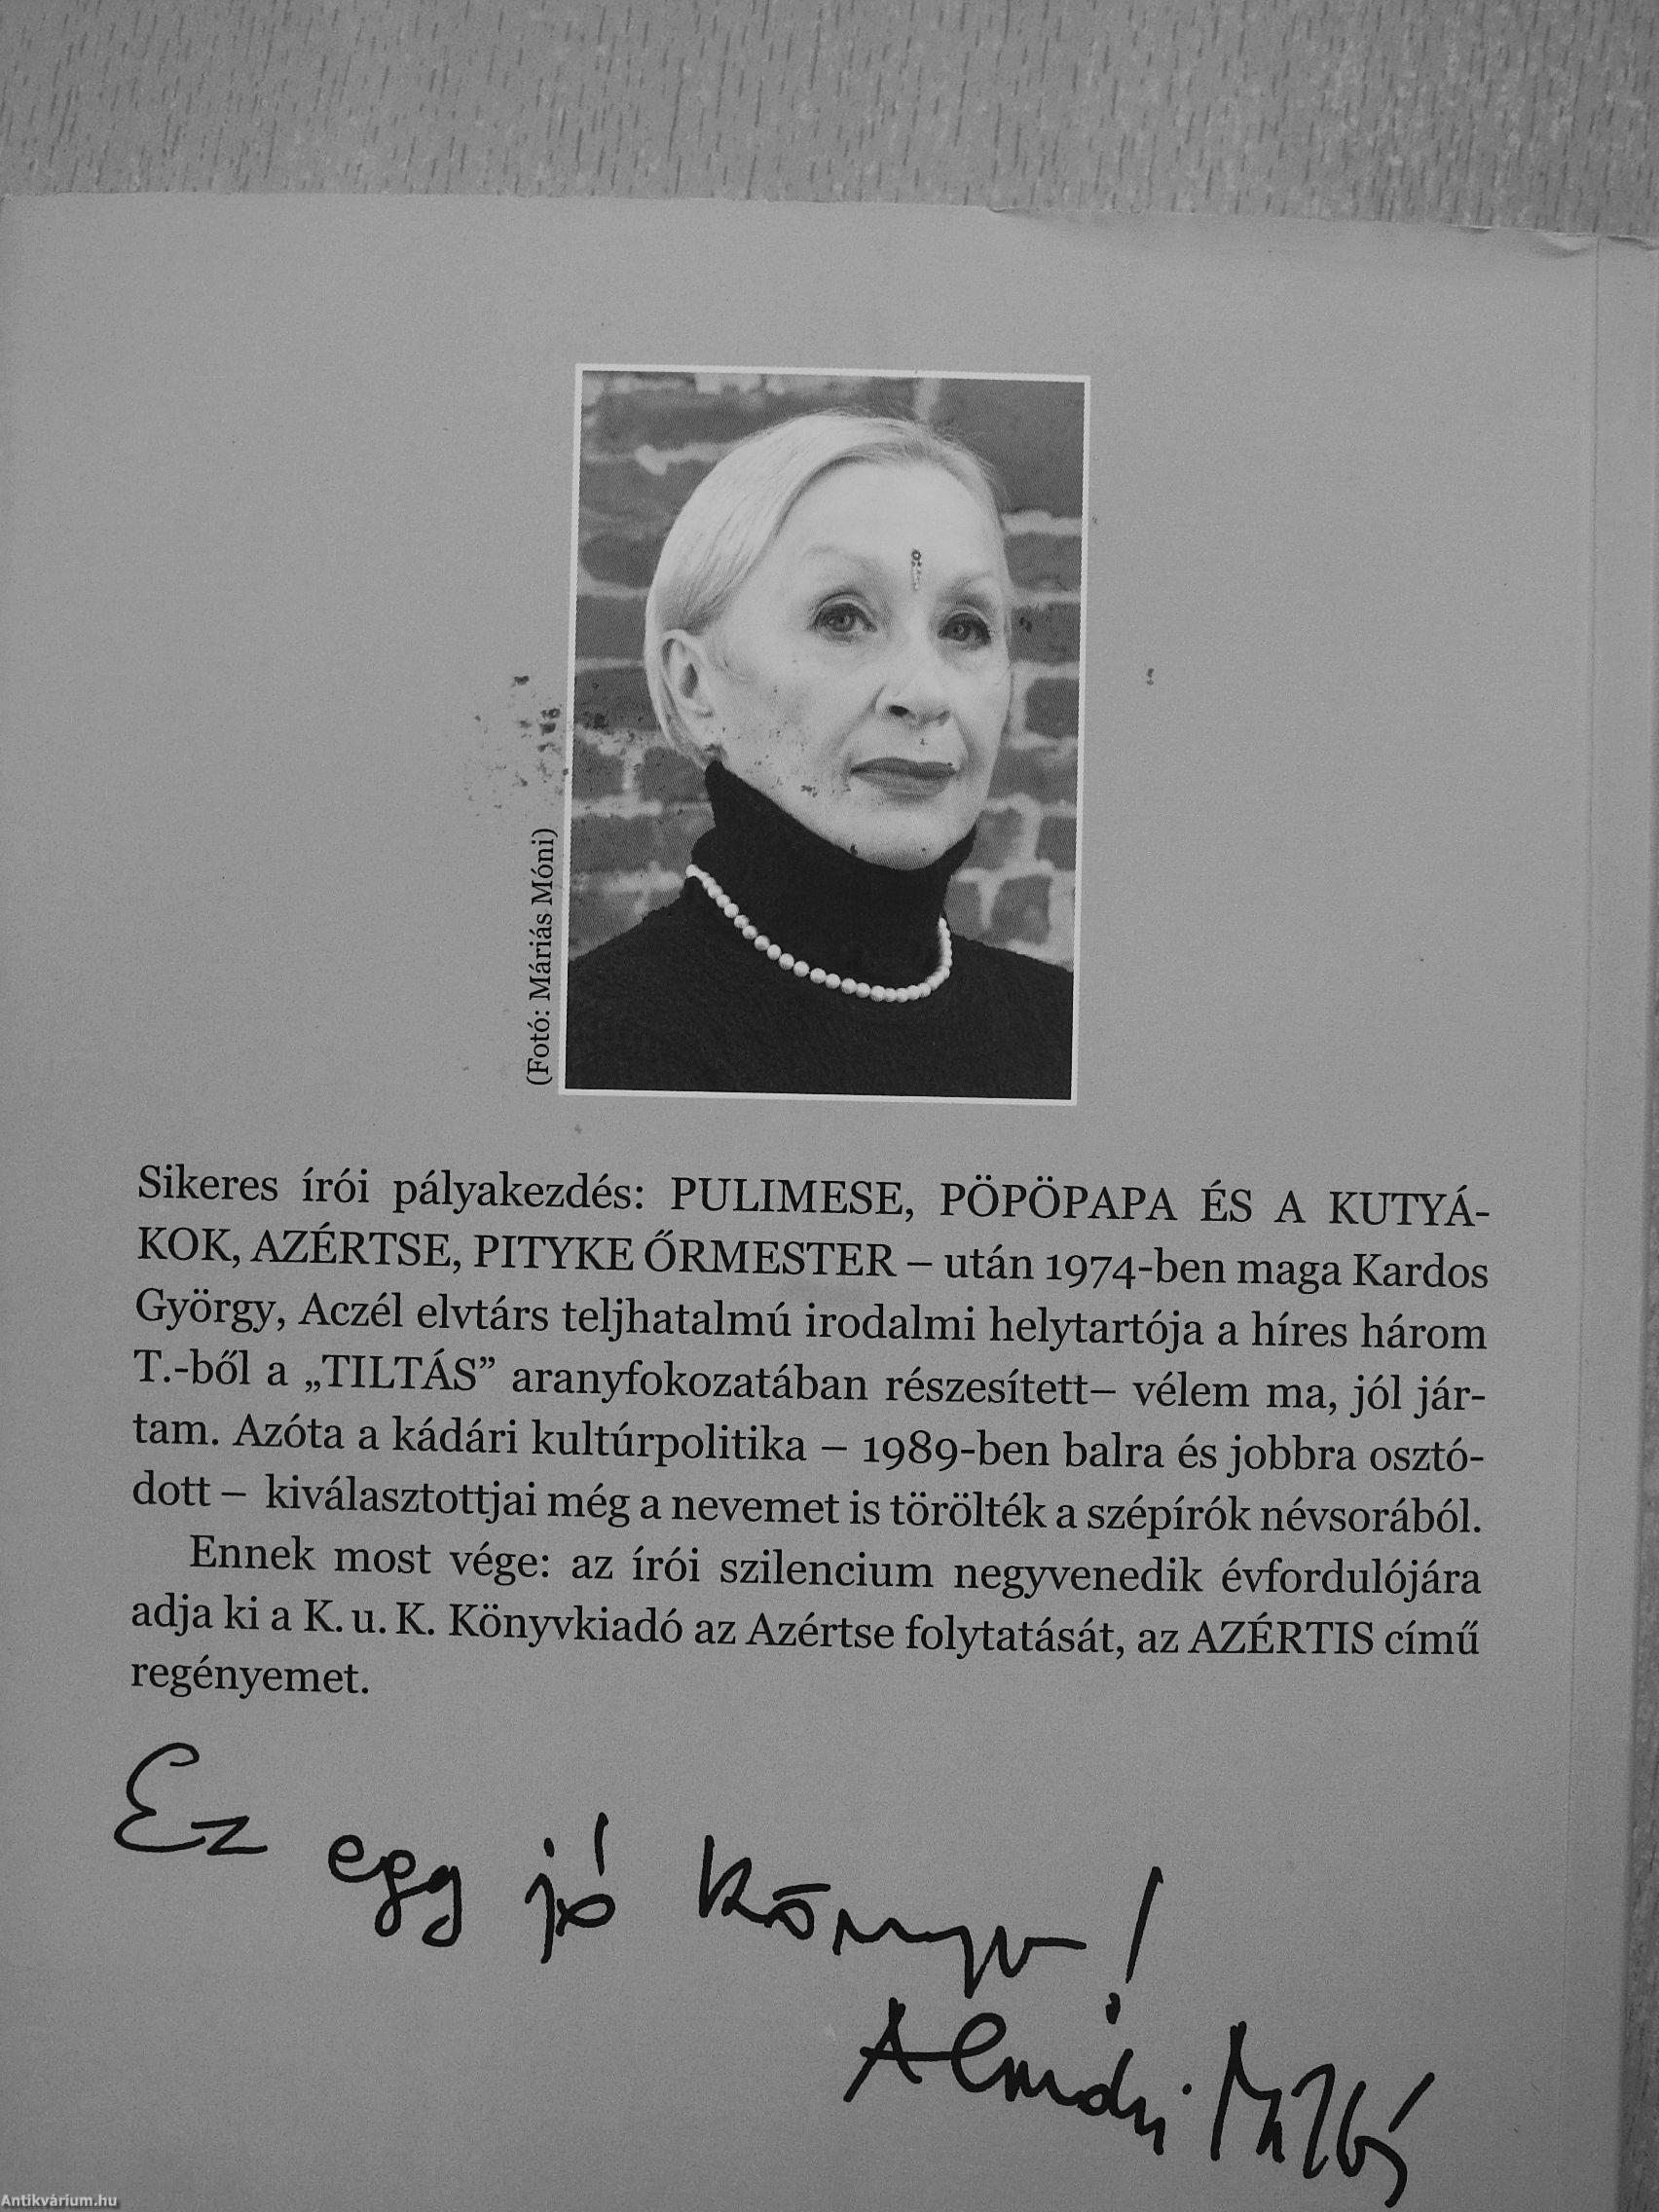 (Fotó: Máriás Móni)
Sikeres írói pályakezdés: PULIMESE, PÖPÖPAPA ÉS A KUTYÁ-
KOK, AZÉRTSE, PITYKE ŐRMESTER – után 1974-ben maga Kardos
György, Aczél elvtárs teljhatalmú irodalmi helytartója a híres három
T.-ből a „TILTÁS” aranyfokozatában részesített– vélem ma, jól jár-
tam. Azóta a kádári kultúrpolitika – 1989-ben balra és jobbra osztó-
dott – kiválasztottjai még a nevemet is törölték a szépírók névsorából.
Ennek most vége: az írói szilencium negyvenedik évfordulójára
adja ki a K. u. K. Könyvkiadó az Azértse folytatását, az AZÉRTIS című
regényemet.
Ez egy jó könyv!
Antikvárium.hu